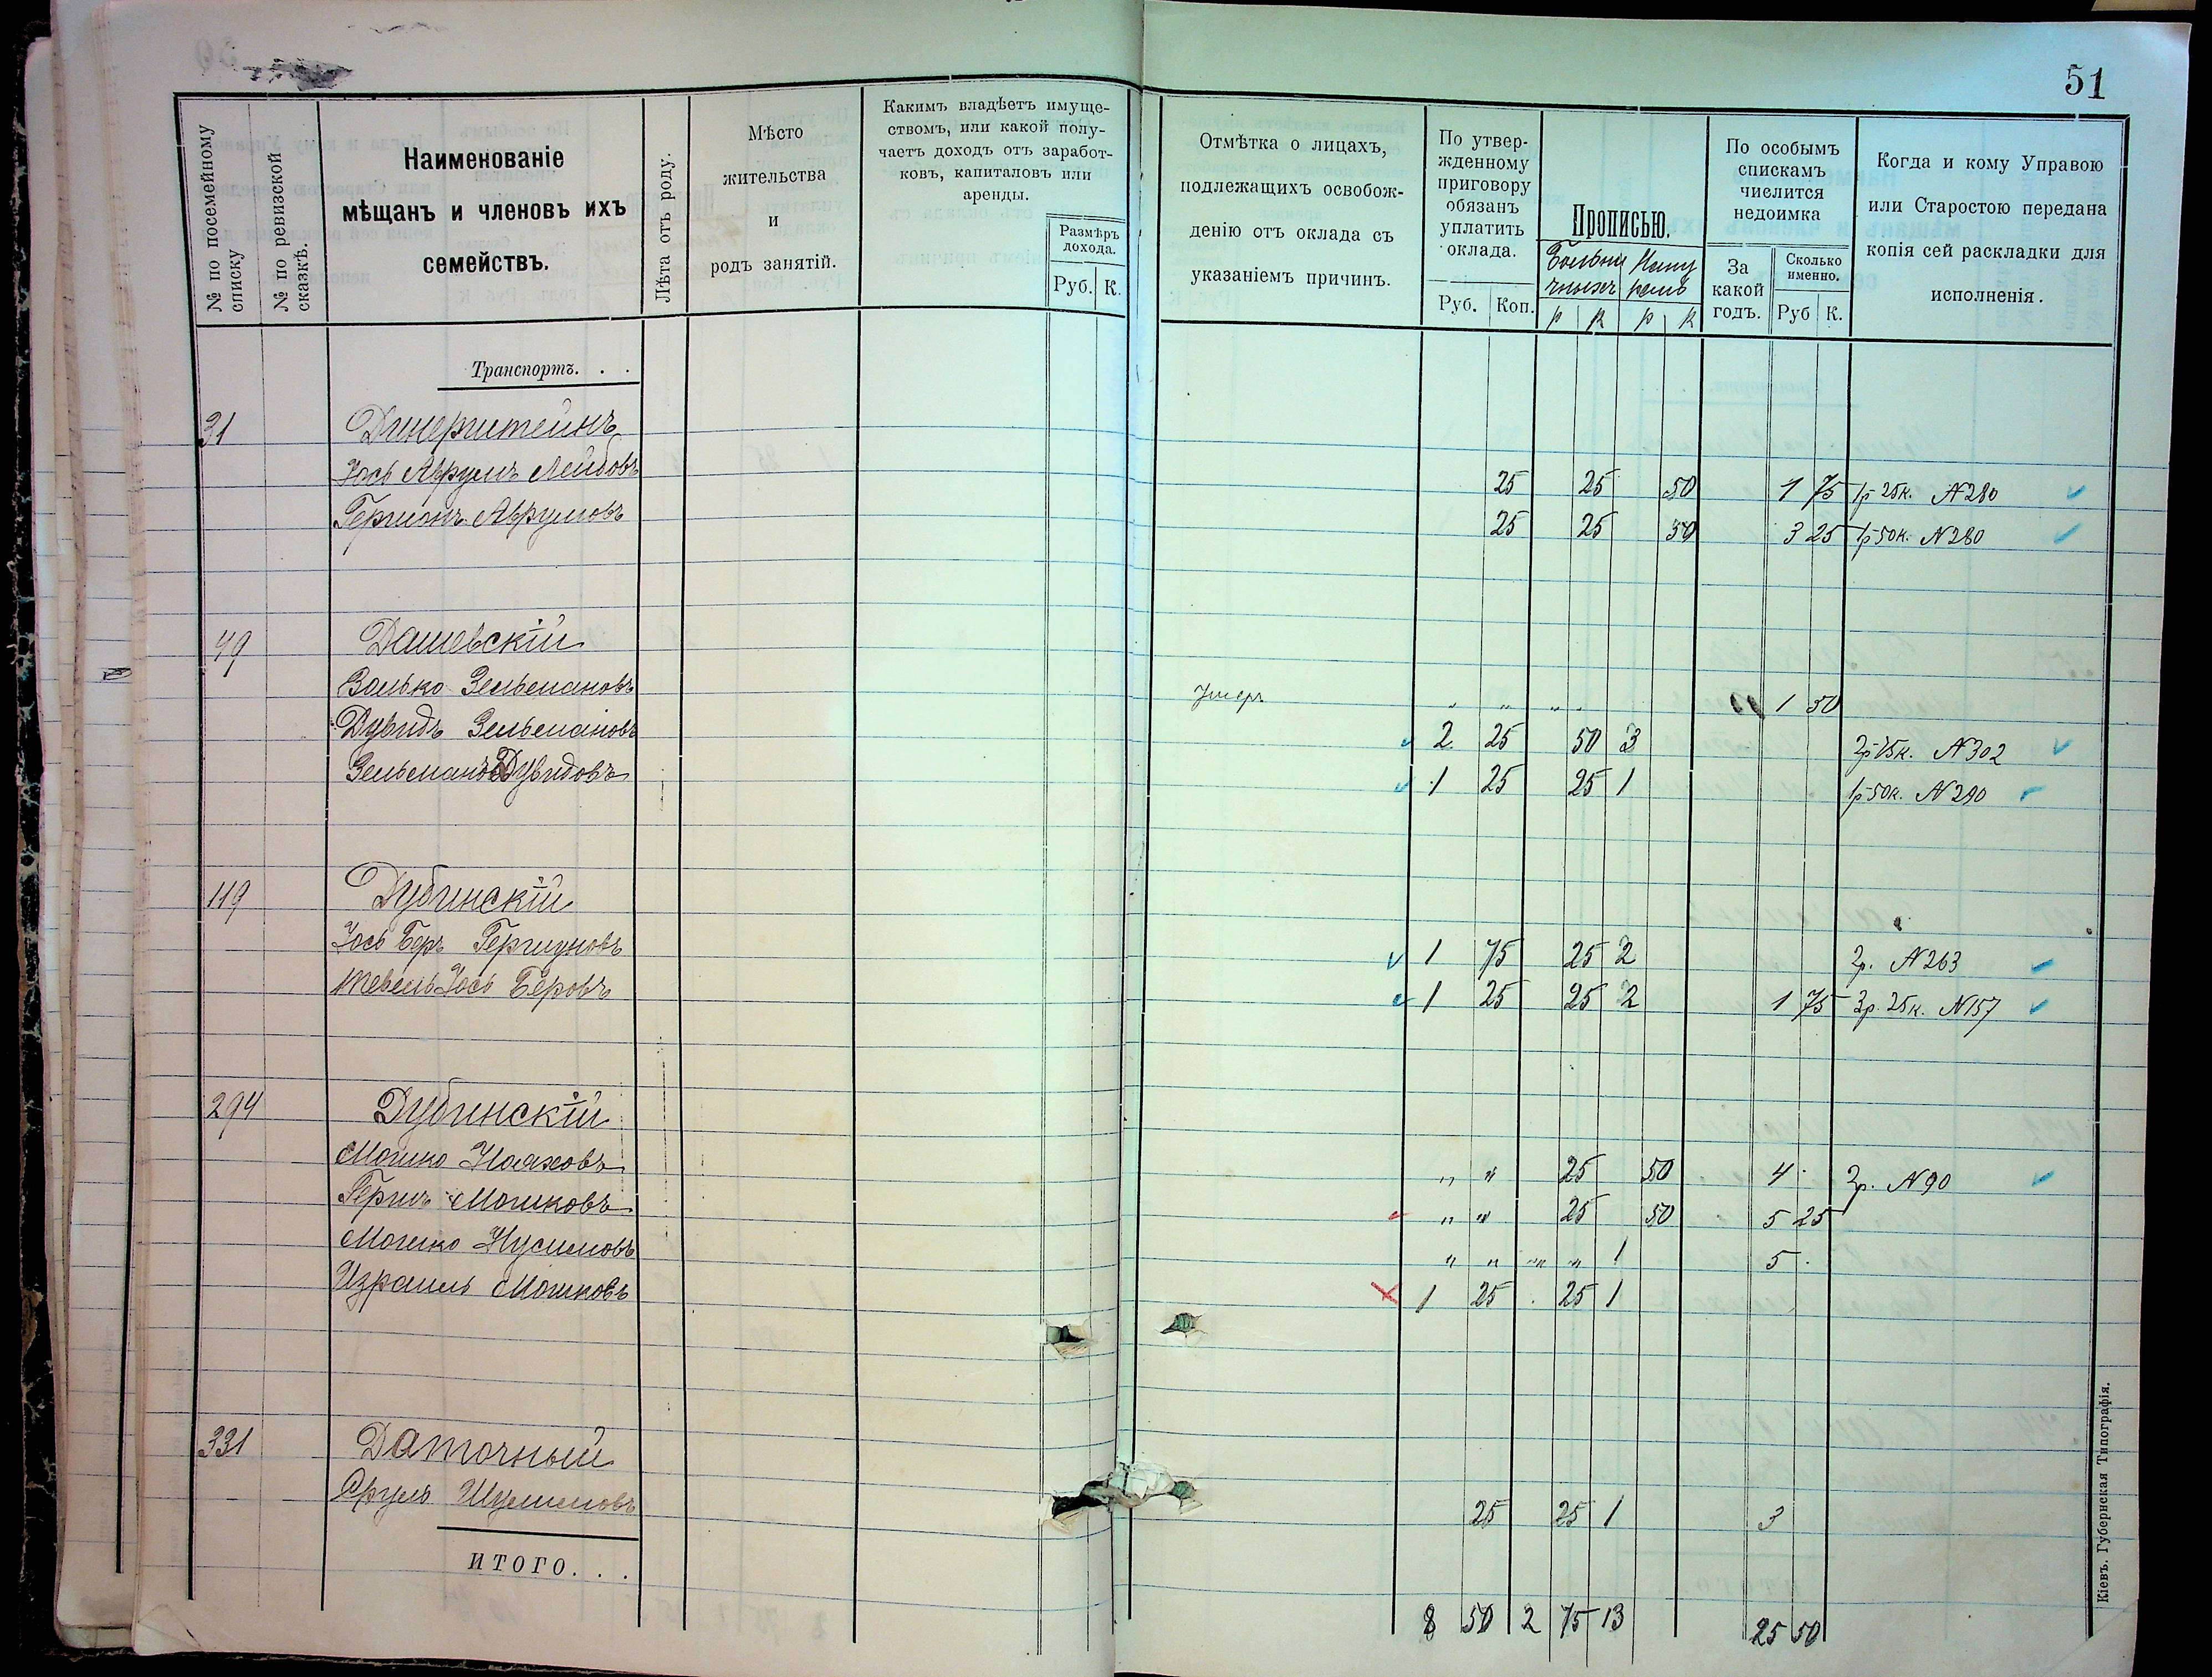 51
№ по посемейному списку
№ по ревизской сказкѣ.
Наименованіе
мѣщанъ и членовъ ихъ
семействъ.
Лѣта отъ роду.
Мѣсто
жительства
и
родъ занятій.
Какимъ владѣетъ имуще-
ствомъ, или какой полу-
чаетъ доходъ отъ заработ-
ковъ, капиталовъ или
аренды.
Размѣръ
дохода.
Руб. К.
Отмѣтка о лицахъ,
подлежащихъ освобож-
денію отъ оклада съ
указаніемъ причинъ.
По утвер-
жденному
приговору
обязанъ
уплатить
оклада.
Руб. Коп.
Прописью.
р к р к
По особымъ
спискамъ
числится
недоимка
За
какой
годъ.
Сколько
именно.
Руб К.
Когда и кому Управою
или Старостою передана
копія сей раскладки для
исполненія.
Транспортъ. . .
31 Динерштейнъ
Іось Аврумъ Лейбовъ 25 25 50 1 75 1р 25к. N280
Гершонъ Аврумовъ 25 25 50 3 25 1р 50к. N280
49 Дашевскій
Волько Зельмановъ Умеръ " " " " 1 50
Дувидъ Зельмановъ 2 25 50 3 2р 75к. N302
Зельманъ Дувидовъ 1 25 25 1 1р 50к. N290
119 Дубинскій
Іось Беръ Гершуновъ 1 75 25 2 2р. N263
Тевель Іось Беровъ 1 25 25 2 1 75 3р. 25к. N157
294 Дубинскій
Мошко Ноаховъ " " 25 50 4 2р. N90
Гершъ Мошковъ " " 25 50 5 25
Мошко Нусимовъ " " " " 1 5
Израиль Мошковъ 1 25 25 1
331 Даточный
Сруль Шулимовъ 25 25 1 3
ИТОГО. . .
8 50 2 75 13 25 50
Кіевъ. Губернская Типографія.